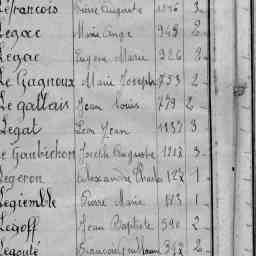 Lefrancois Pierre Auguste 1146 3
Legac Marie Ange 948 2
Legac Eugène Marie 926 3
Le Gagneux Marie Joseph 753 2
Le gallais Jean Louis 779 2
Legat Léon Jean 1137 3
Le Gaubichon Joseph Auguste 1218 3
Legeron Alexandre Charles 127 1
Legiemble Pierre Marie 113 1
Legoff Jean Baptiste 590 2
Legouté 2